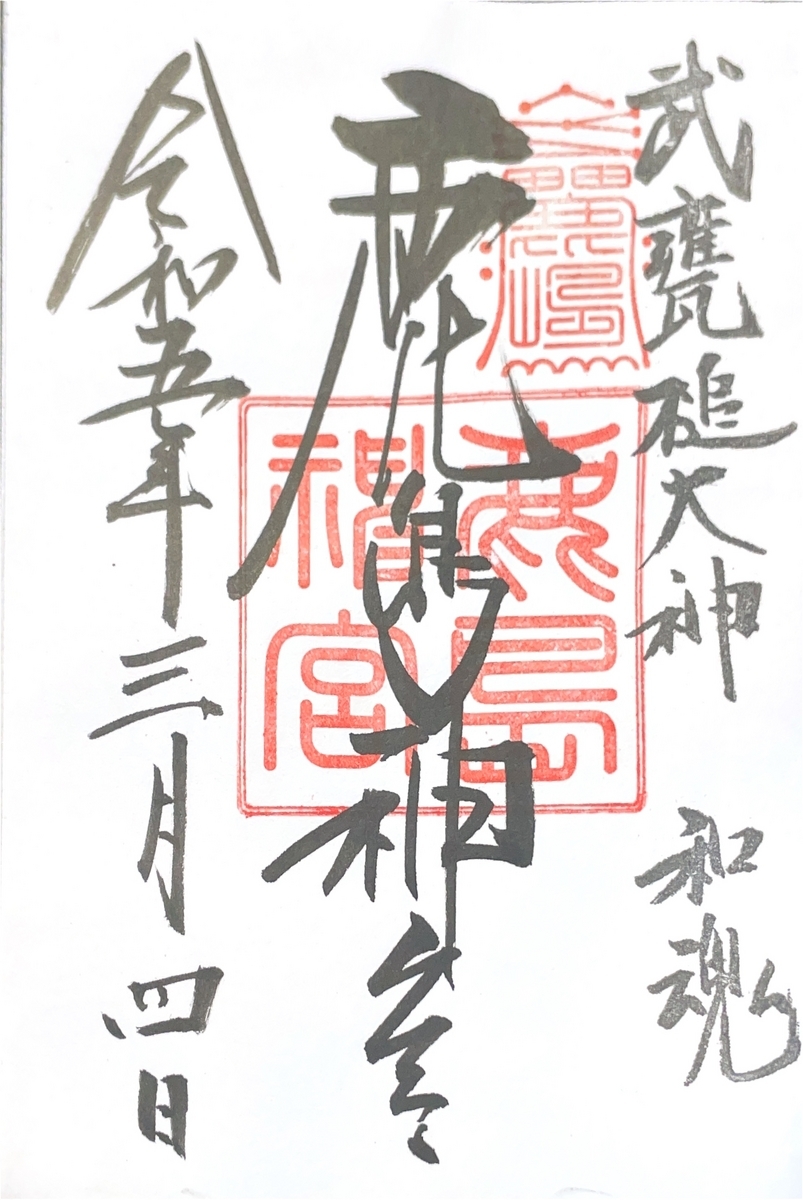 武甕槌大神 和魂
鹿島神宮
鹿島神宮
令和五年三月四日